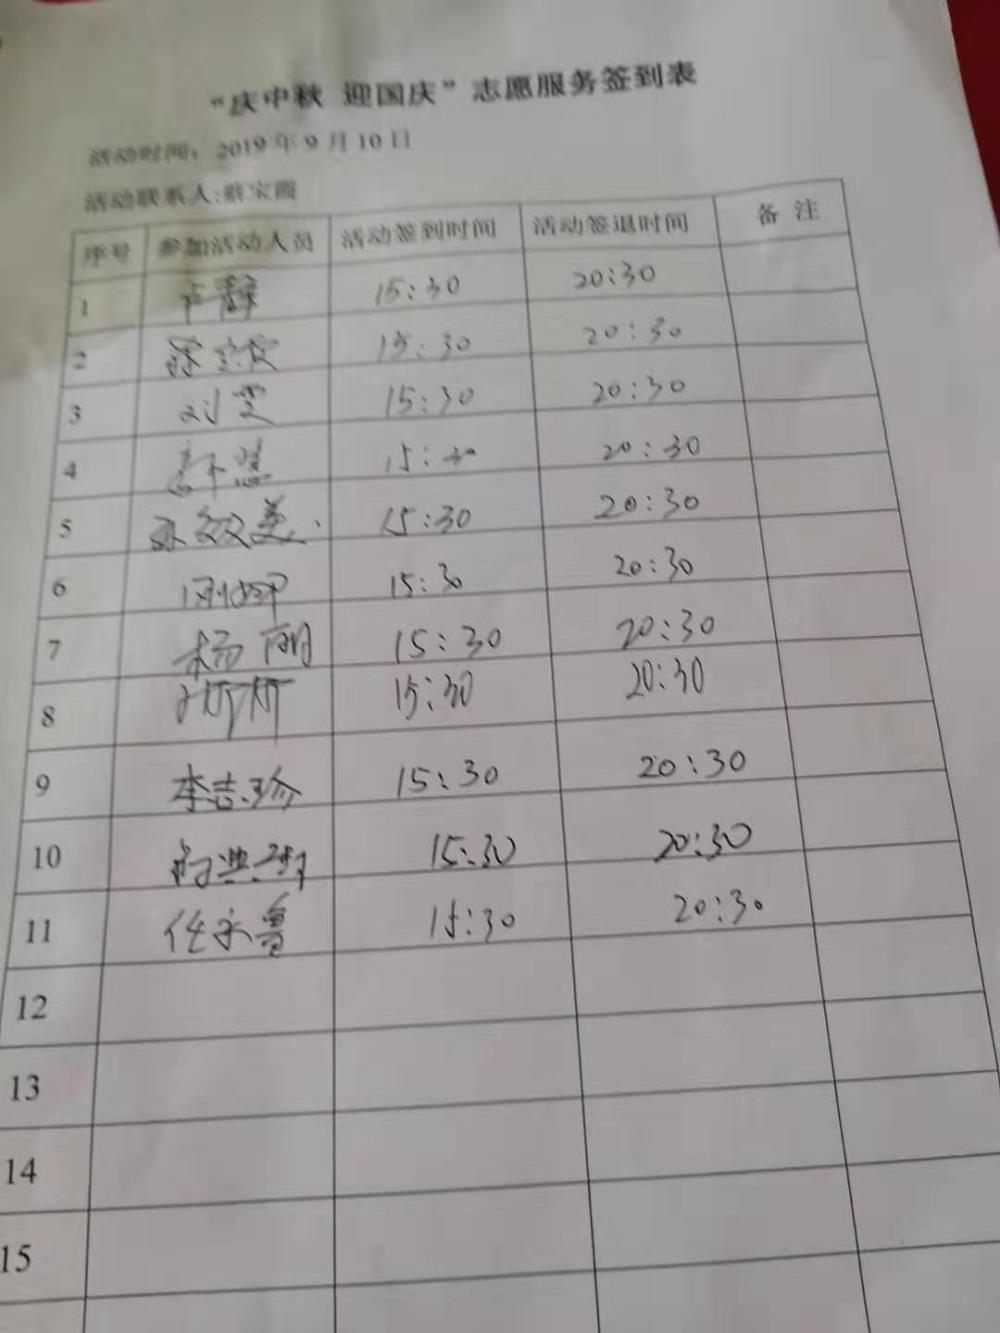 “庆中秋 迎国庆”志愿服务签到表
活动时间：2019年9月10日
活动联系人:蔡宝霞
序号 参加活动人员 活动签到时间 活动签退时间 备 注
1 卢静 15:30 20:30
2 15:30 20:30
3 刘雯 15:30 20:30
4 15:30 20:30
5 15:30 20:30
6 15:30 20:30
7 杨丽 15:30 20:30
8 15:30 20:30
9 李吉珍 15:30 20:30
10 15:30 20:30
11 任永鲁 15:30 20:30
12
13
14
15